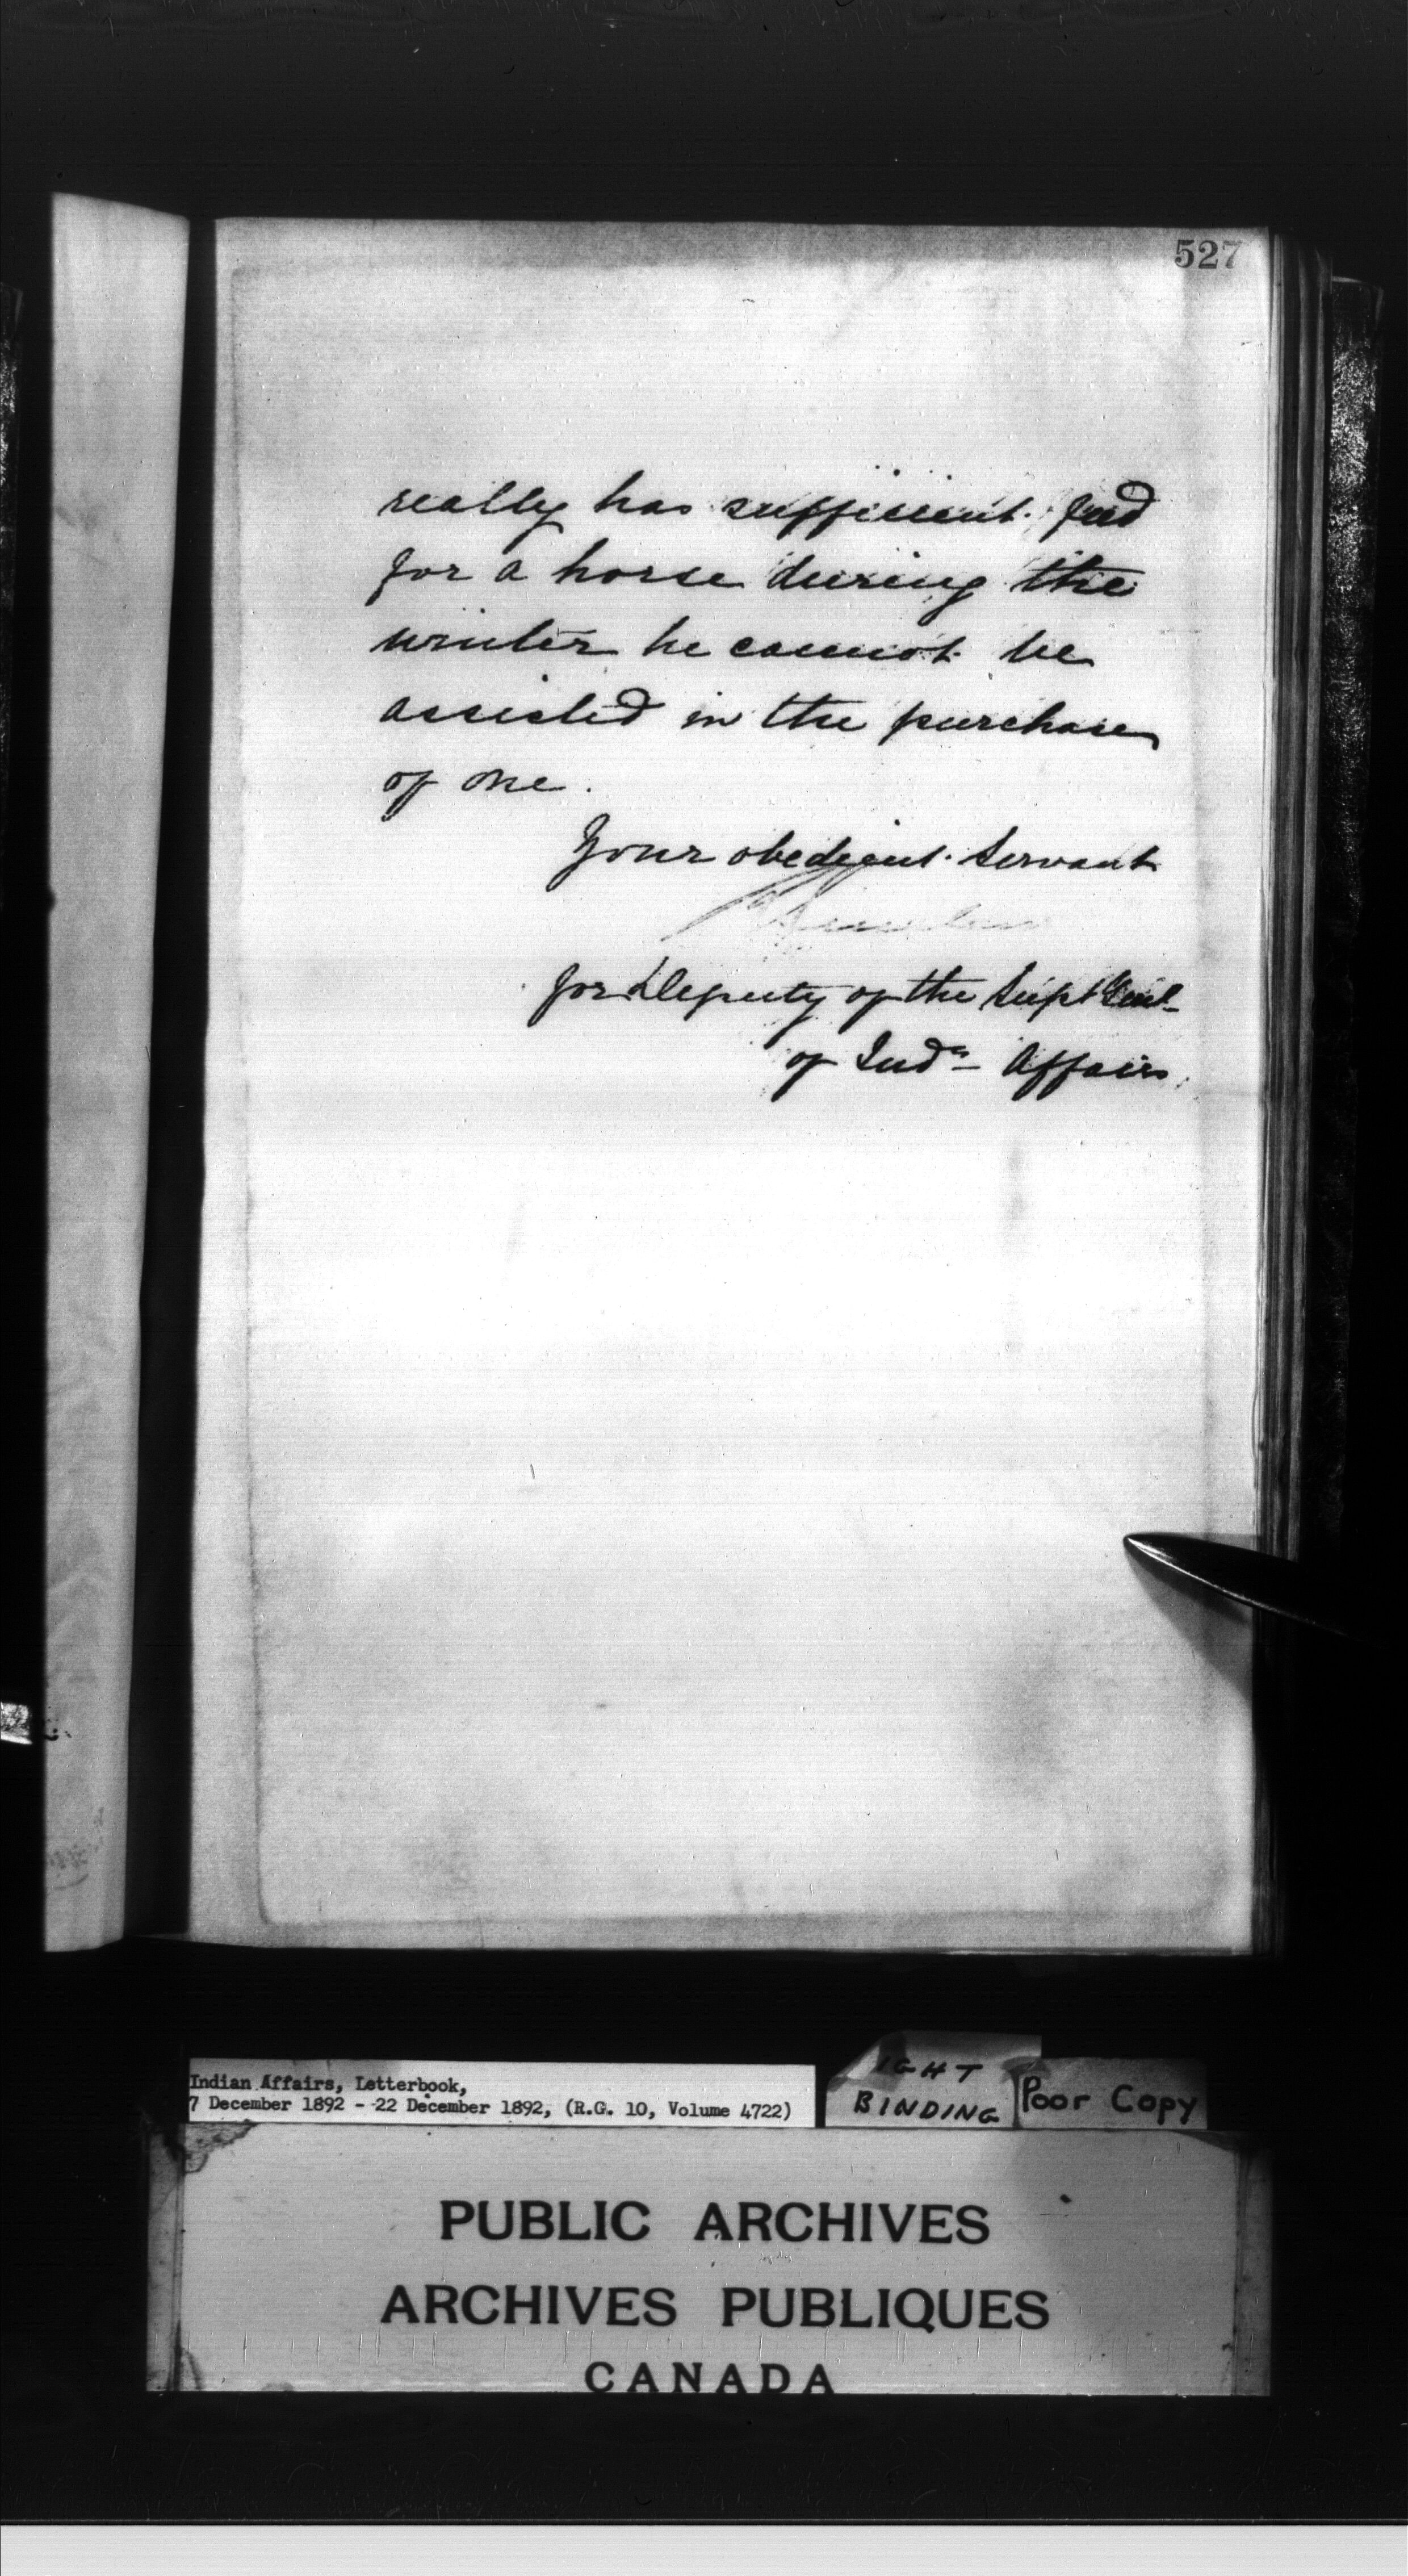 527
really has sufficient feed
for a horse during the
winter he cannot be
assisted in the purchase
of one.
Your obedient Servant
for Deputy of the Supt Genl
of Indn Affairs.
Indian Affairs, Letterbook,
7 December 1892 - 22 December 1892, (R.G. 10, Volume 4722)
IGHT
BINDING
Poor Copy
PUBLIC ARCHIVES
ARCHIVES PUBLIQUES
CANADA